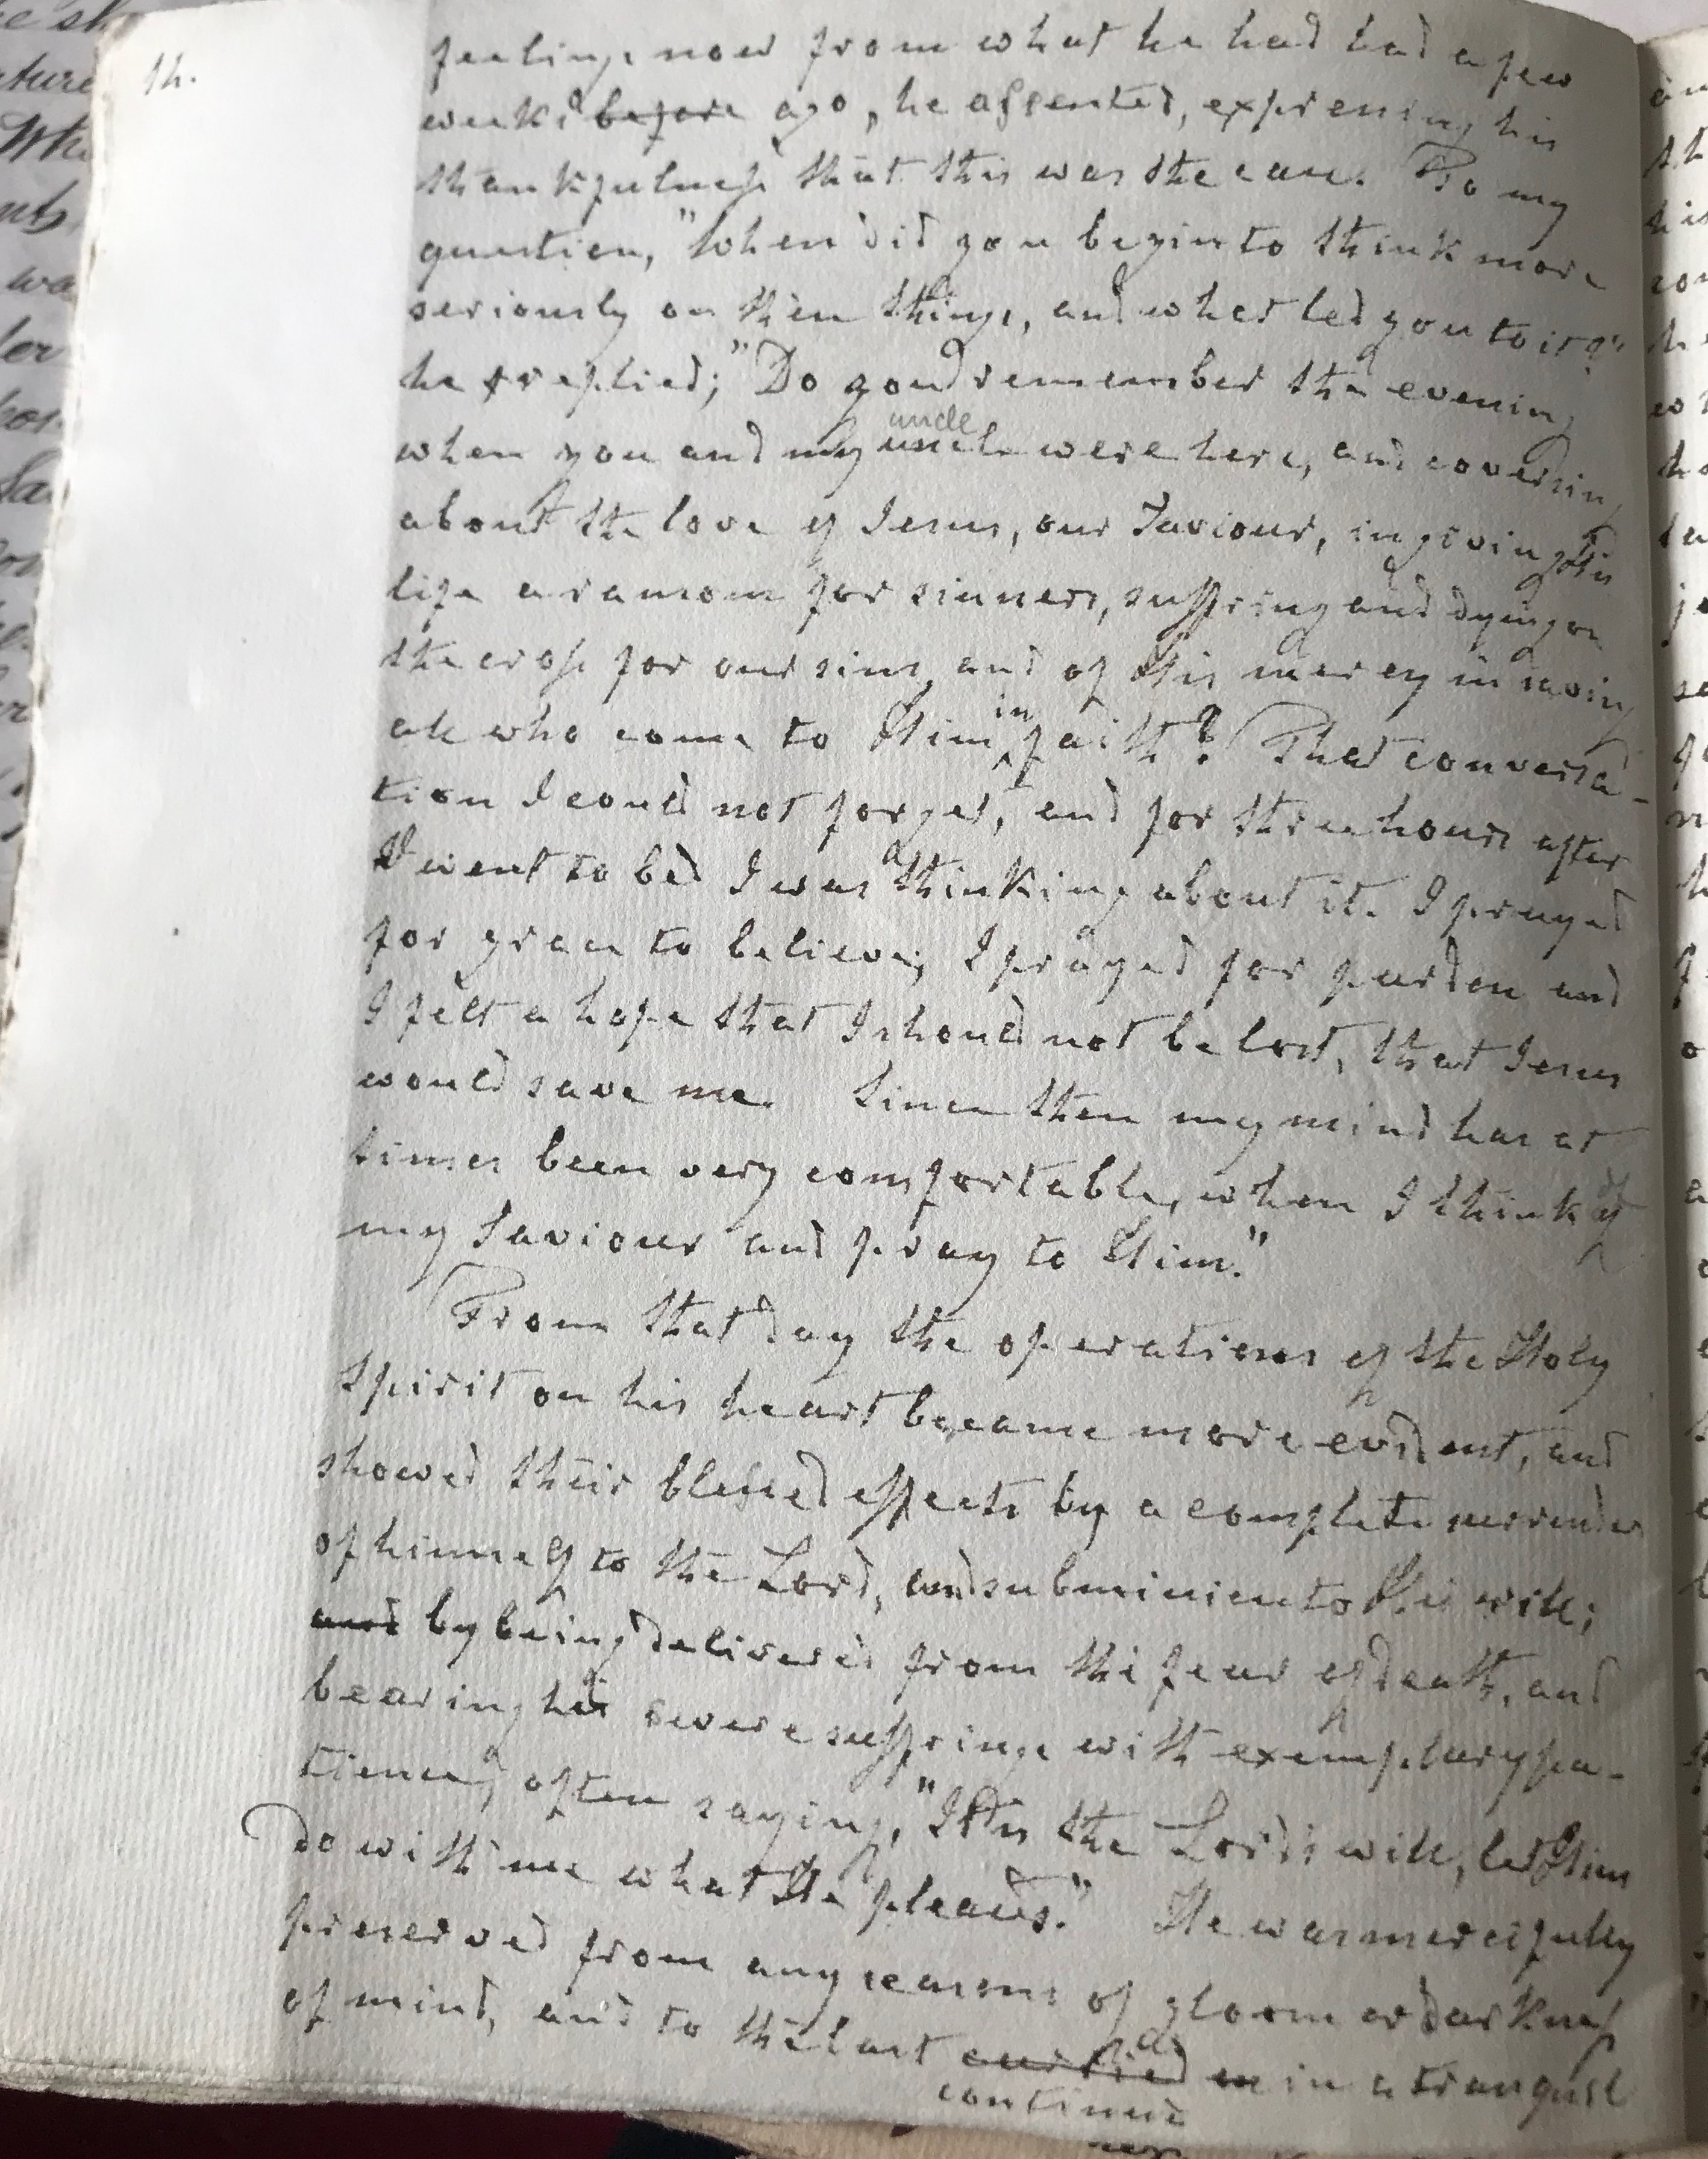 14.
feelings now from what he had had a few
weeks before ago, he assented, expressing his
thankfulness that this was the case. To my
question, "When did you begin to think more
seriously on these things, and what led you to it?"
he replied; "Do you remember the evening
uncle
when you and my uncle were here, and coversing
about the love of Jesus, our Saviour, in giving His
life a ransom for sinners, suffering and dying on
the cross for our sins, and of His mercy in saving
in
all who come to Him faith? That conversa-
tion I could not forget, and for three hours after
I went to bed I was thinking about it. I prayed
for grace to believe; I prayed for pardon and
I felt a hope that I should not be lost, that Jesus
would save me. Since then my mind has at
times been very comfortable, when I think of
my Saviour and pray to Him."
From that day the operations of the Holy
Spirit on his heart became more evident, and
showed their blessed effects by a complete surrender
of himself to the Lord, and submission to His will;
and by being delivered from the fear of death, and
bearing his severe sufferings with exemplary pa-
tience, often saying, "It is the Lord's will, let Him
do with me what He pleases." He was mercifully
preserved from any seasons of gloom or darkness
of mind, and to the last in a tranquil
continued